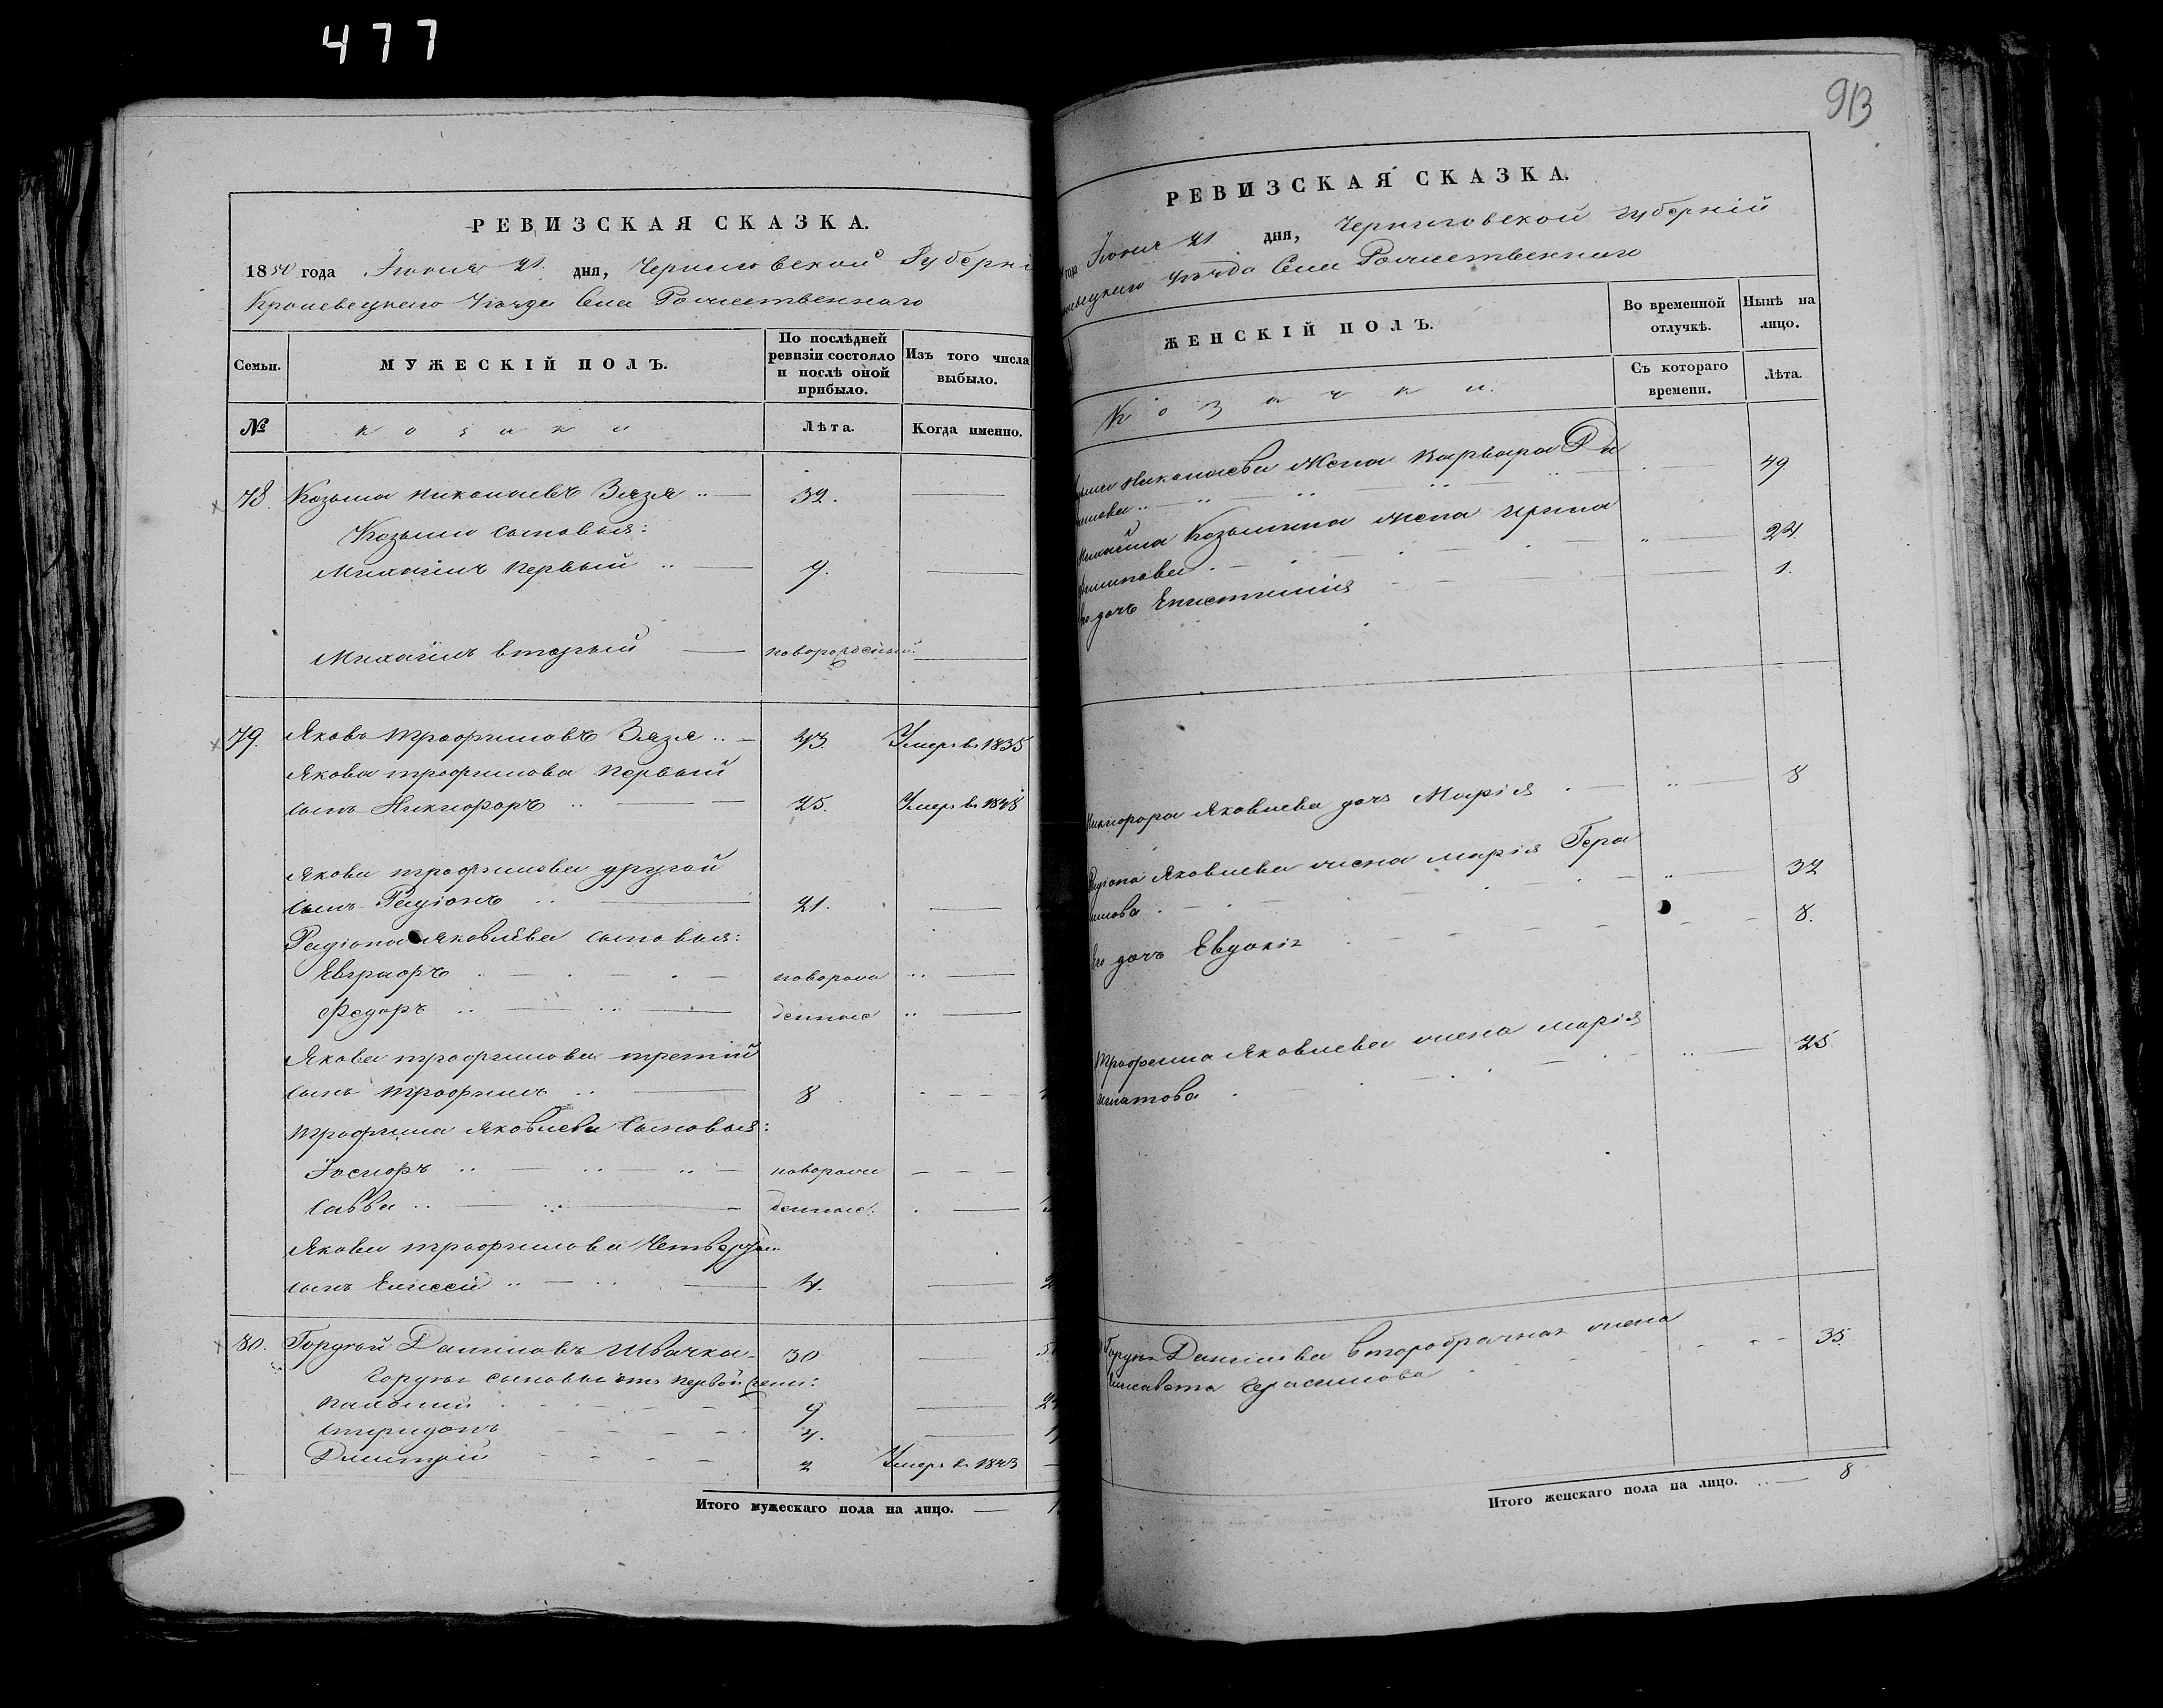 477
РЕВИЗСКАЯ СКАЗКА.
1850 года Іюня 21 дня, Черниговской Губерні
Кролевецкаго Уѣзда Села Рожественнаго
Семьи.
МУЖЕСКІЙ ПОЛЪ.
По послѣдней ревизіи состояло и послѣ оной прибыло.
Изъ того числа выбыло.
№
козаки
Лѣта.
Когда именно.
78. Козьма Николаевъ Зязя 32.
Козьмы сыновья:
Михаилъ первый 9.
Михаилъ вторый новорожденный
79. Яковъ Трофимовъ Зязя 43. Умеръ въ 1835
Якова Трофимова первый
сынъ Никифоръ 25. Умеръ въ 1848
Якова Трофимова другой
сынъ Радіонъ 21.
Радіона Яковлева сыновья:
новорож
Федоръ денные
Якова Трофимова третій
сынъ Трофимъ 8
Трофима Яковлева сыновья:
новорож
Савва денные:
Якова Трофимова четвертый
сынъ Елисей 4.
80. Гордѣй Даниловъ Швачка 30
сыновья отъ первой жены:
9
Спиридонъ 4.
Дмитрій 2 Умеръ въ 1843
Итого мужескаго пола на лицо.
913
РЕВИЗСКАЯ СКАЗКА.
года Іюня 21 дня, Черниговской губерніи
Уѣзда Села Рожественнаго
ЖЕНСКІЙ ПОЛЪ.
Во временной отлучкѣ.
Нынѣ на лицо.
Козачки.
Съ котораго времени.
Лѣта.
Николаева жена Варвара 49
Михаила Козьмина жена Ирина
24.
дочь Епистимія 1.
Никифора Яковлева дочь Марія 8
Радіона Яковлева жена Марія Гера
симова 32
Его дочь Евдокія 8.
Трофима Яковлева жена Марія
Игнатова 25
Данилова второбрачная жена
Елисавета Герасимова 35.
Итого женскаго пола на лицо. 8